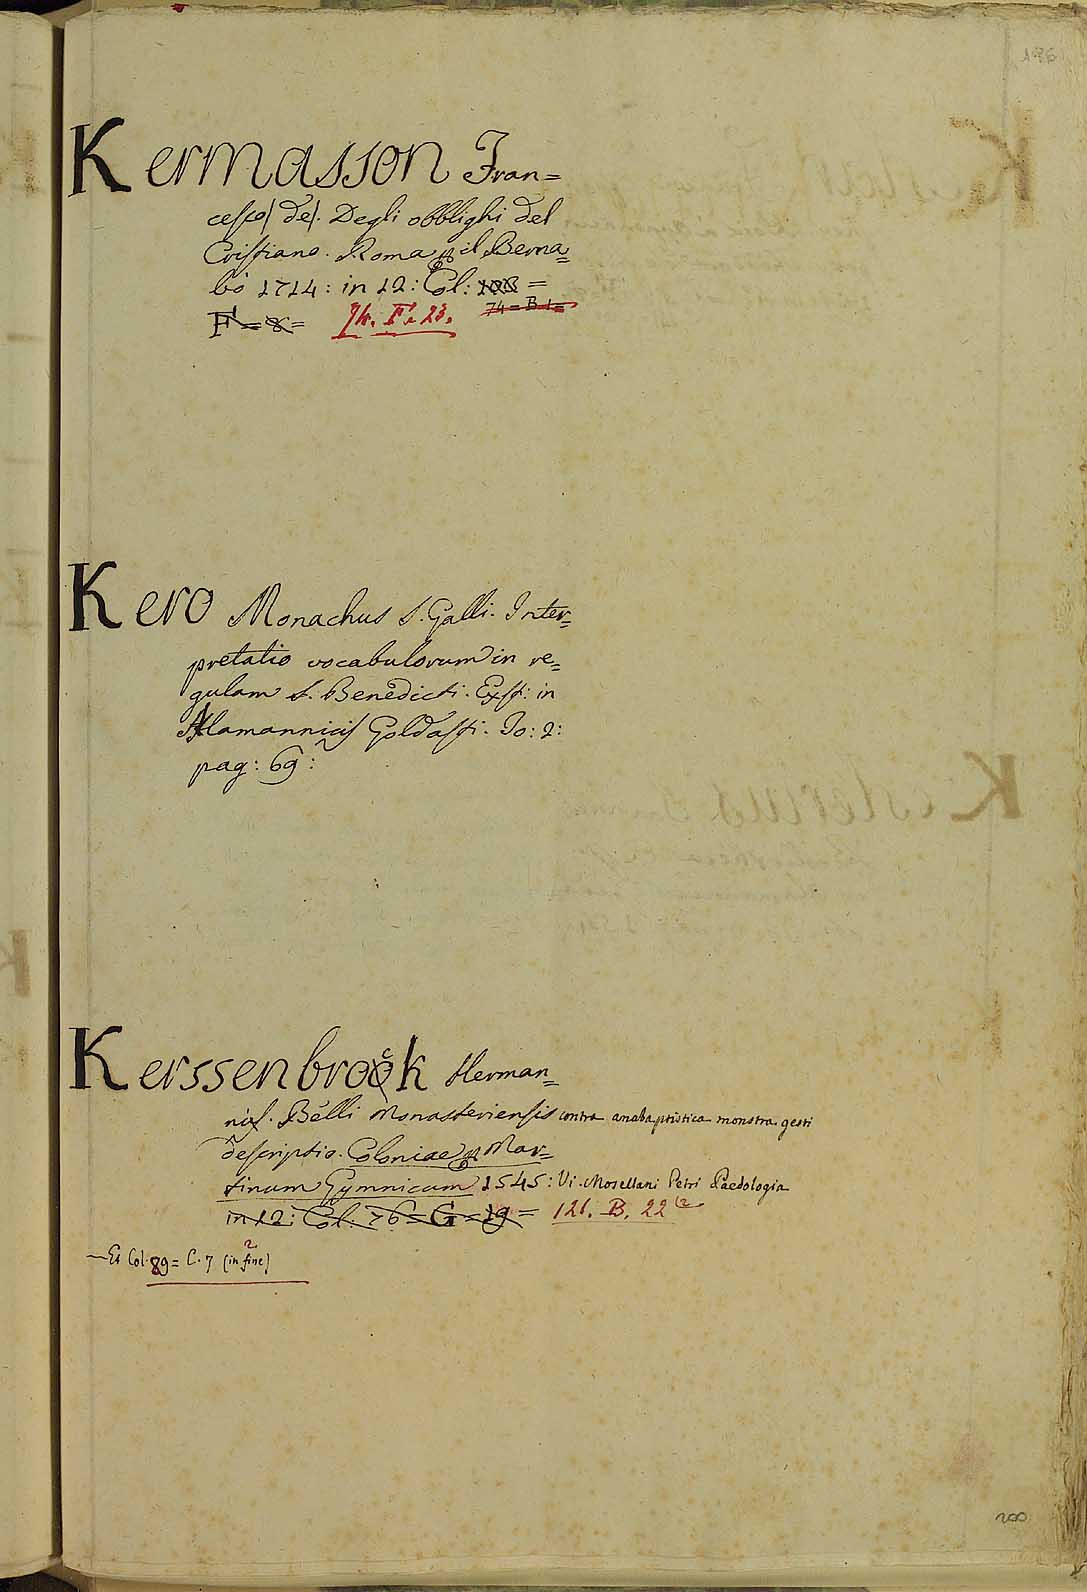 Kermasson Fran=
cesco / de /. Degli obblighi del
Cristiano. Roma p il Berna=
bò 1714: in 12: Col: 108 =
74 = B 1 =
F = 8 = 74. F. 23.
Kero Monachus S. Galli. Inter=
pretatio vocabulorum in re=
gulam S. Benedicti. Exst: in
Alamannicis Goldasti. To: 2:
pag: 69:
Kerssenbrock Herman=
ni. Belli Monasteriensis contra anabaptistica monstra gesti
descriptio. Coloniae p Mar=
tinum Gymnicum 1545: Vi. Mosellani Petri Paedologia
in 12: Col: 76 = G = 19 = 121. B. 22
— Et Col. 89 = C. 7 (in fine)
2
200